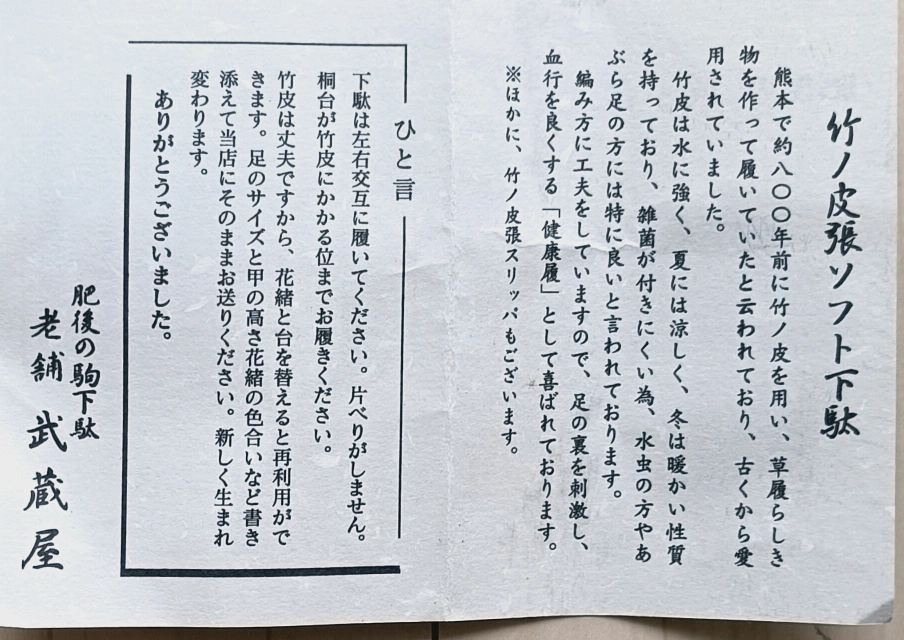 竹ノ皮張ソフト下駄
熊本で約八〇〇年前に竹ノ皮を用い、草履らしき
物を作って履いていたと云われており、古くから愛
用されていました。
竹皮は水に強く、夏には涼しく、冬は暖かい性質
を持っており、雑菌が付きにくい為、水虫の方やあ
ぶら足の方には特に良いと言われております。
編み方に工夫をしていますので、足の裏を刺激し、
血行を良くする「健康履」として喜ばれております。
※ほかに、竹ノ皮張スリッパもございます。
ひと言
下駄は左右交互に履いてください。片べりがしません。
桐台が竹皮にかかる位までお履きください。
竹皮は丈夫ですから、花緒と台を替えると再利用がで
きます。足のサイズと甲の高さ花緒の色合いなど書き
添えて当店にそのままお送りください。新しく生まれ
変わります。
ありがとうございました。
肥後の駒下駄
老舗 武蔵屋